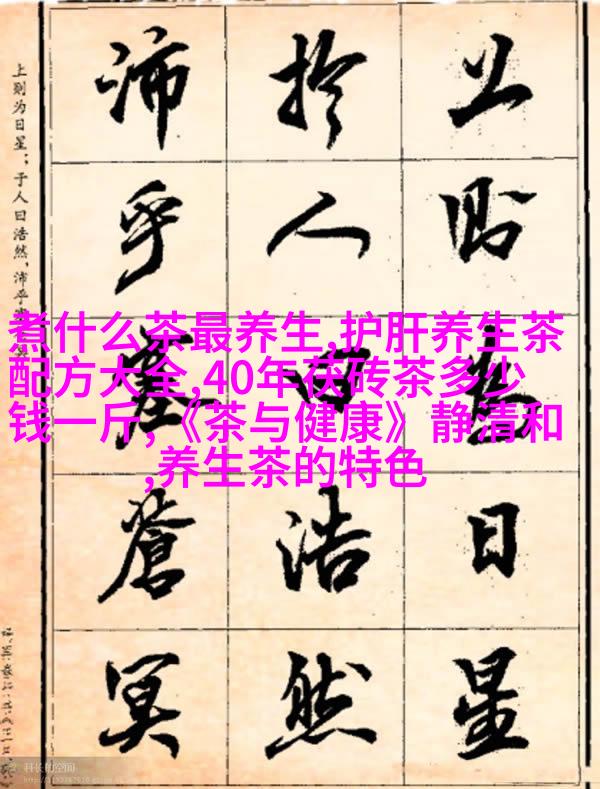 上则为日星；于人曰浩然，沛乎
上则为日星
於人曰浩然
沛乎塞苍冥
煮什么茶最养生,护肝养生茶
配方大全,40年茯砖茶多少
钱一斤,《茶与健康》静清和
,养生茶的特色
科长的空间